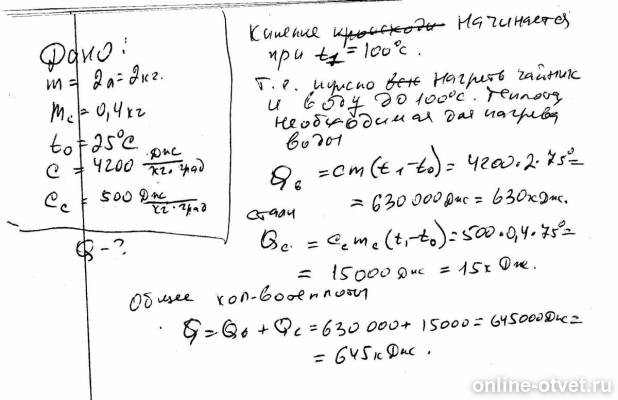 Дано:
m = 2л = 2кг.
mс = 0,4 кг
t₀ = 25°С
c = 4200 Дж/кг·град
Cс = 500 Дж/кг·град
Q - ?
Кипение начинается
при t₁ = 100°С.
Т.е. нужно нагреть чайник
и воду до 100°С. Теплота
необходимая для нагрева
воды
Qв = cm(t₁-t₀) = 4200·2·75° =
= 630 000 Дж = 630 кДж.
стали
Qс = Cс mс (t₁-t₀) = 500·0,4·75° =
= 15000 Дж = 15к Дж.
Общее кол-во теплоты
Q = Qв + Qс = 630 000 + 15000 = 645000 Дж =
= 645к Дж.
online-otvet.ru